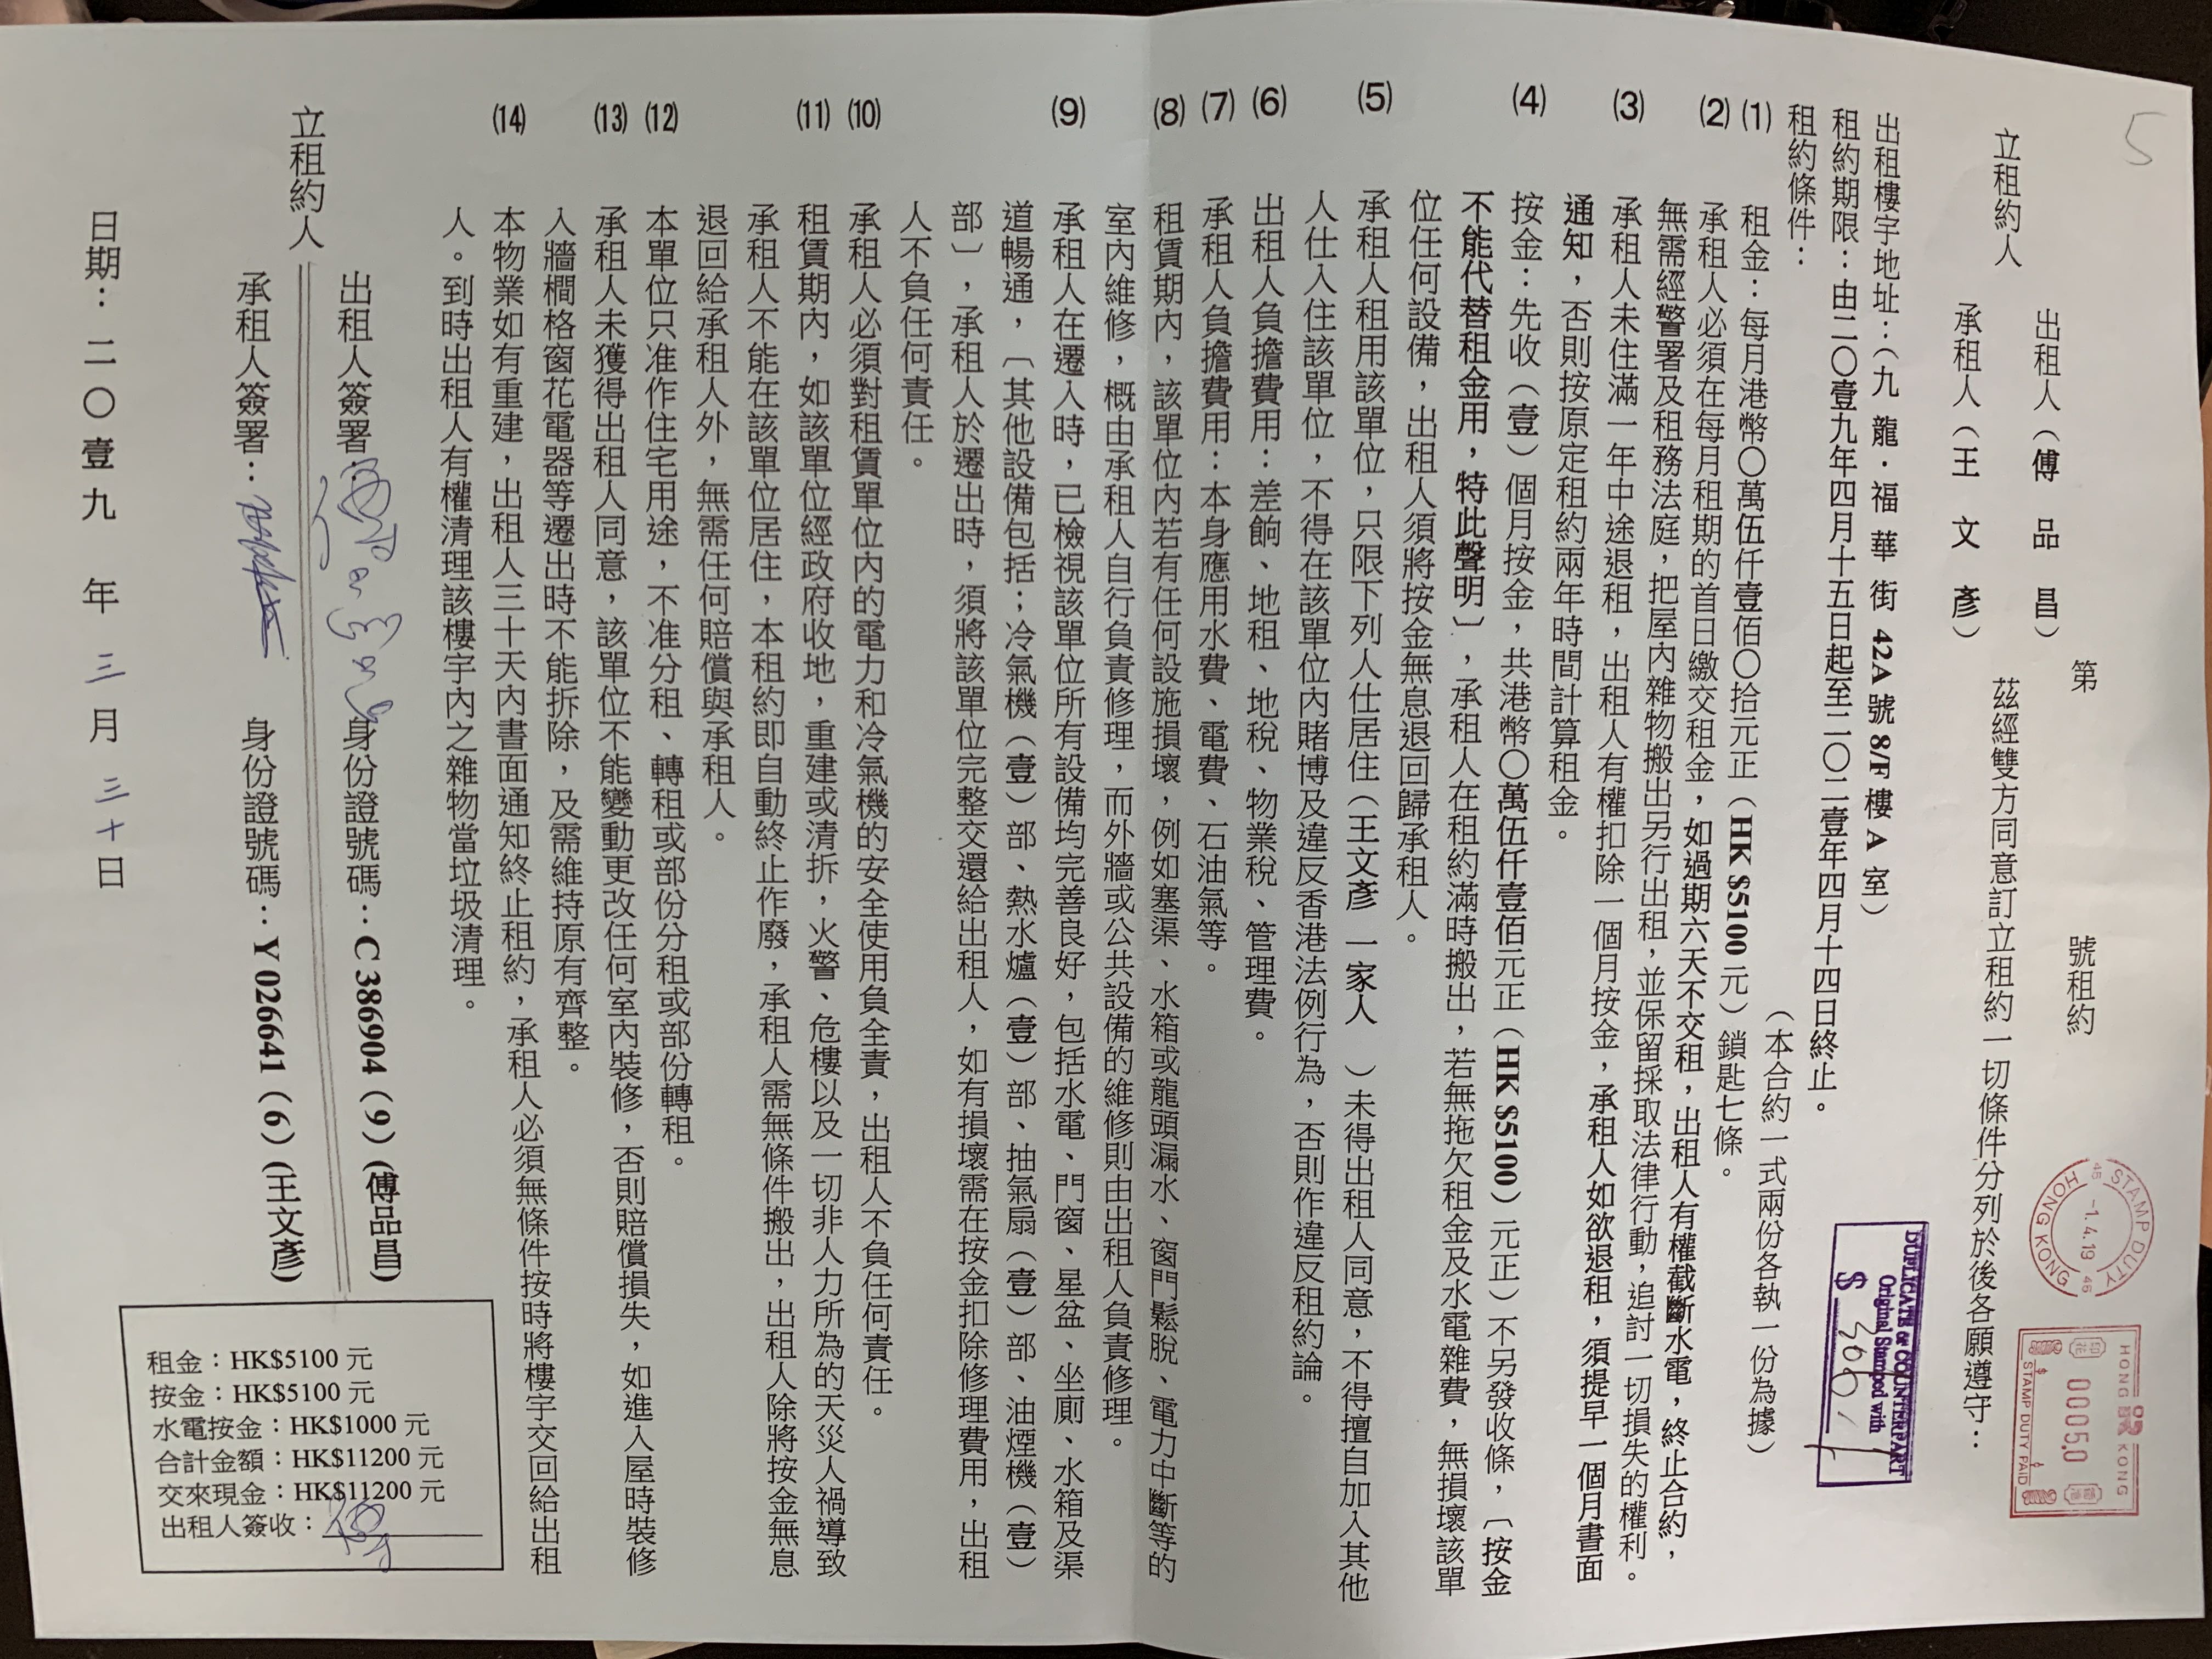 5
第　　　號租約
立租約人
出租人（傅 品 昌）
承租人（王 文 彥）
茲經雙方同意訂立租約一切條件分列於後各願遵守：
出租樓宇地址：（九 龍．福 華 街 42A 號 8/F 樓 A 室）
租約期限：由二〇壹九年四月十五日起至二〇二壹年四月十四日終止。
租約條件：
（本合約一式兩份各執一份為據）
(1) 租金：每月港幣〇萬伍仟壹佰〇拾元正（HK $5100 元）鎖匙七條。
(2) 承租人必須在每月租期的首日繳交租金，如過期六天不交租，出租人有權截斷水電，終止合約，
無需經警署及租務法庭，把屋內雜物搬出另行出租，並保留採取法律行動，追討一切損失的權利。
(3) 承租人未住滿一年中途退租，出租人有權扣除一個月按金，承租人如欲退租，須提早一個月書面
通知，否則按原定租約兩年時間計算租金。
(4) 按金：先收（壹）個月按金，共港幣〇萬伍仟壹佰元正（HK $5100）元正）不另發收條，〔按金
不能代替租金用，特此聲明〕，承租人在租約滿時搬出，若無拖欠租金及水電雜費，無損壞該單
位任何設備，出租人須將按金無息退回歸承租人。
(5) 承租人租用該單位，只限下列人仕居住（王文彥 一家人 ）未得出租人同意，不得擅自加入其他
人仕入住該單位，不得在該單位內賭博及違反香港法例行為，否則作違反租約論。
(6) 出租人負擔費用：差餉、地租、地稅、物業稅、管理費。
(7) 承租人負擔費用：本身應用水費、電費、石油氣等。
(8) 租賃期內，該單位內若有任何設施損壞，例如塞渠、水箱或龍頭漏水、窗門鬆脫、電力中斷等的
室內維修，概由承租人自行負責修理，而外牆或公共設備的維修則由出租人負責修理。
(9) 承租人在遷入時，已檢視該單位所有設備均完善良好，包括水電、門窗、星盆、坐廁、水箱及渠
道暢通，〔其他設備包括；冷氣機（壹）部、熱水爐（壹）部、抽氣扇（壹）部、油煙機（壹）
部〕，承租人於遷出時，須將該單位完整交還給出租人，如有損壞需在按金扣除修理費用，出租
人不負任何責任。
(10) 承租人必須對租賃單位內的電力和冷氣機的安全使用負全責，出租人不負任何責任。
(11) 租賃期內，如該單位經政府收地，重建或清拆，火警、危樓以及一切非人力所為的天災人禍導致
承租人不能在該單位居住，本租約即自動終止作廢，承租人需無條件搬出，出租人除將按金無息
退回給承租人外，無需任何賠償與承租人。
(12) 本單位只准作住宅用途，不准分租、轉租或部份分租或部份轉租。
(13) 承租人未獲得出租人同意，該單位不能變動更改任何室內裝修，否則賠償損失，如進入屋時裝修
入牆櫚格窗花電器等遷出時不能拆除，及需維持原有齊整。
(14) 本物業如有重建，出租人三十天內書面通知終止租約，承租人必須無條件按時將樓宇交回給出租
人。到時出租人有權清理該樓宇內之雜物當垃圾清理。
立租約人
出租人簽署： 身份證號碼：C 386904（9）(傅品昌)
承租人簽署： 身份證號碼：Y 026641（6）(王文彥)
日期：二〇壹九 年 三 月 三十 日
租金：HK$5100 元
按金：HK$5100 元
水電按金：HK$1000 元
合計金額：HK$11200 元
交來現金：HK$11200 元
出租人簽收：
STAMP DUTY
45 -1.4.19 45
HONG KONG
HONG KONG
印花
00050
$ STAMP DUTY PAID $
DUPLICATE or COUNTERPART
Original Stamped with
$